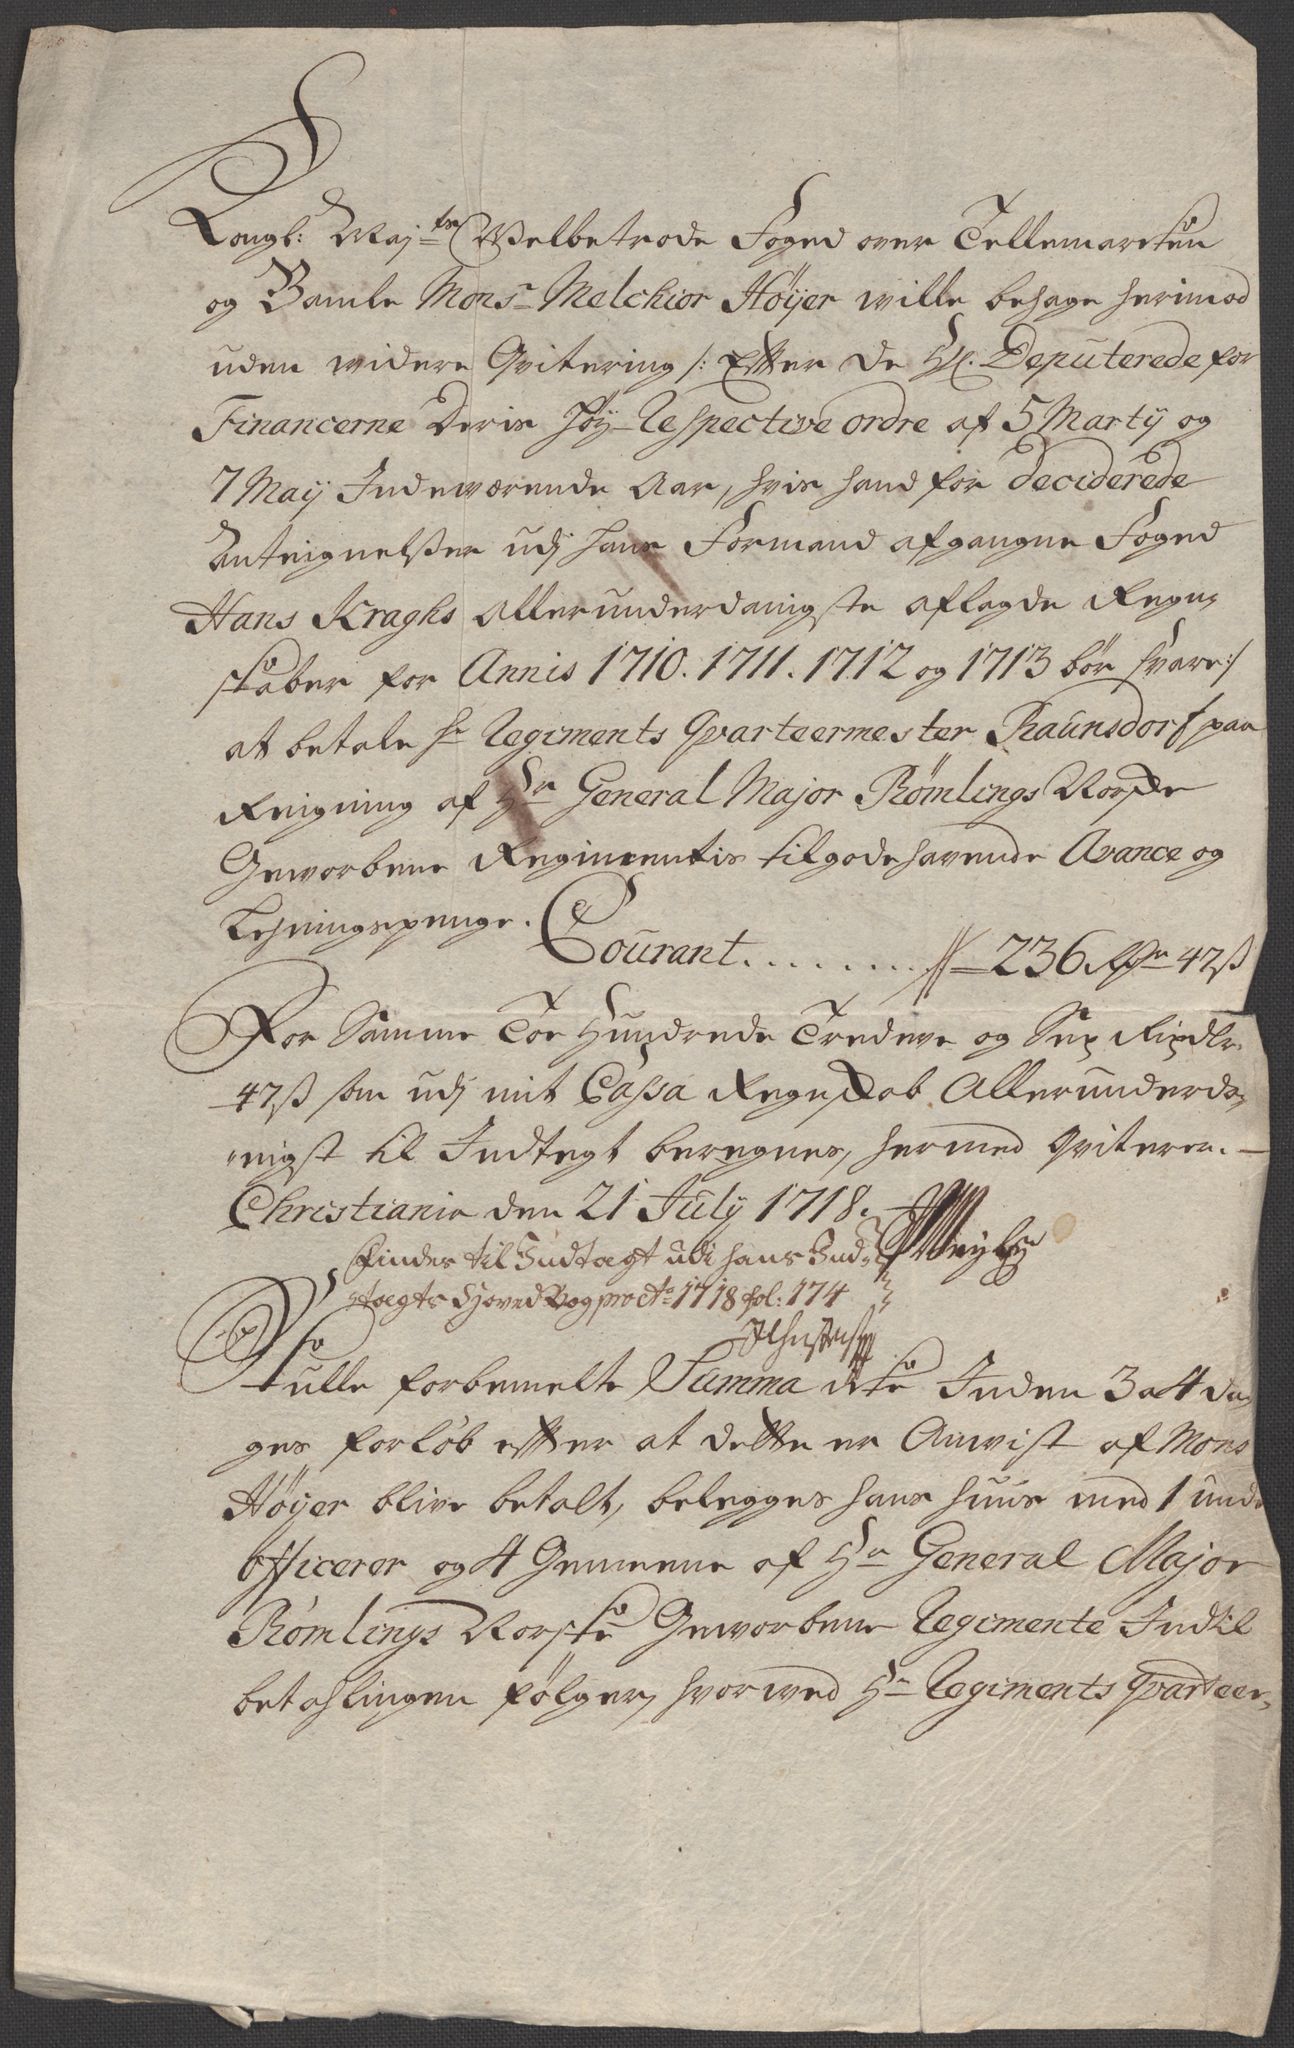 Kongl: Maj:ts Welbetrode Foged over Tellemarcken
og Bamle Mons:r Melchior Høÿer wille behage herimod
uden widere Qvitering /: Efter de H:r Deputerede for
Financerne deris høÿ-Respective ordre af 5 Martÿ og
7 Maÿ Indeværende Aar, hvis hand for deciderede
Anteignelßer udj hans Formand afgangne Foged
Hans Kraghs allerunderdanigste aflagde Regn,
skaber for Annis 1710. 1711. 1712 og 1713 bør svare :/
at betale hr Regiments Qvarteermester Raunsdorf paa
Reigning af Hr General Major Rømlings Norske
Geworbene Regimentis tilgodehavende Avance og
Lehningspenge.
Courant . . . . . . . . . 236 Rdr 47 ß
For Samme Toe Hundrede Tredeve og Sex Rixdlr.
47 ß som udj mit Cassa Regnskab Allerunderda,
nigst til Indtegt beregnes, hermed Qviterer.
Christiania den 21 Julÿ 1718.
Findes til Indtægt udi hans Ind,
tægts Hoved Bog pro Ao 1718 fol: 174
Skulle forbemelte Summa icke Inden 3 a 4 da,
ges forløb efter at dette er Anvist af Mons
Høÿer blive betalt, belegges hans huus med 1 unde
officerer og 4 Gemeene af Hr General Major
Rømlings Norske Geworbene Regimente Indtil
betahlingen følger, hvorved Hr Regiments Qvarteer,